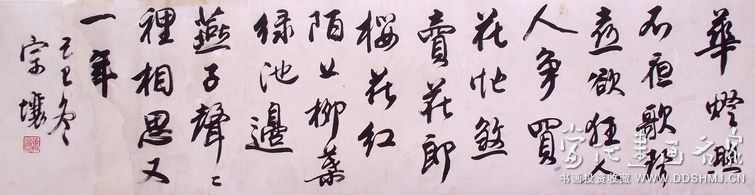 華燈
不夜歌
欲狂人
人爭買
花忙煞
賣花郎
櫻花紅
陌上柳葉
綠池邊
燕子聲〻
裡相思又
一年
己巳冬
宗壤
當代書畫名家
书画投资收藏 WWW.DDSHMJ.CN